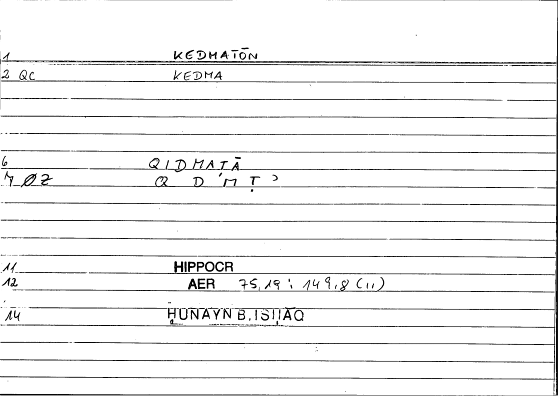 1 KEDMATŌN
2 QC KEDMA
6 QIDMATĀ
7 ØZ Q D 'M Ṭ ʾ
11 HIPPOCR
12 AER 75,19; 149,8 (11)
14 ḤUNAYN B. ISḤĀQ